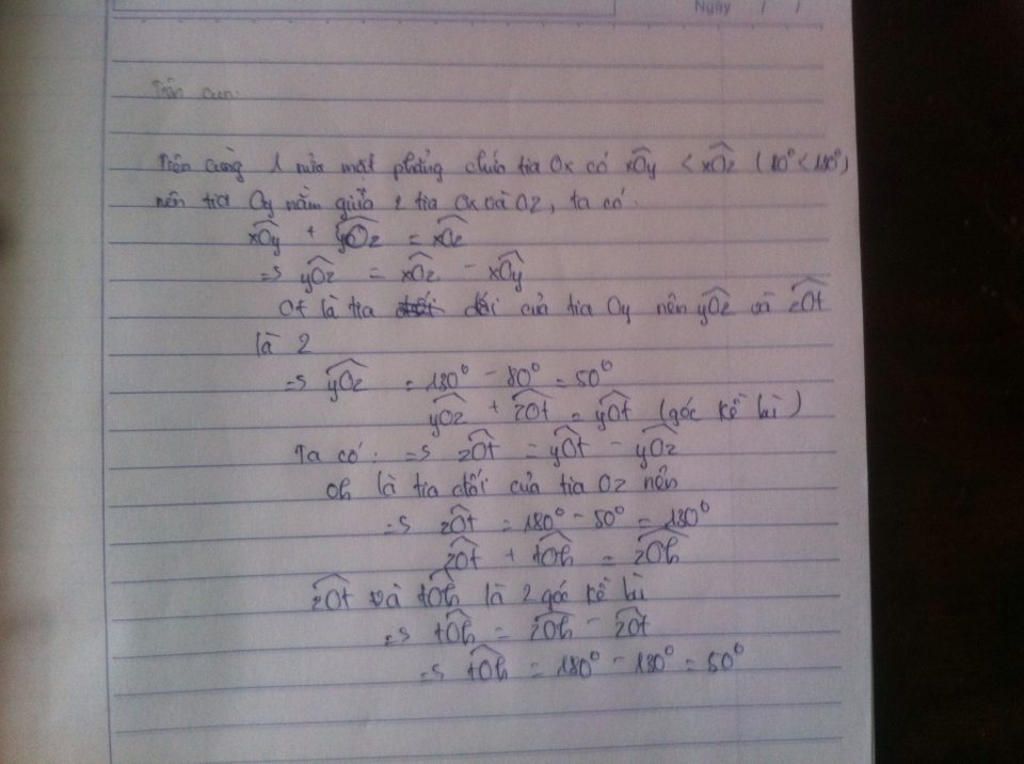 Ngày / /
Trên cùn
Trên cùng 1 nửa mặt phẳng chứa tia Ox có xOy < xOz (80° < 130°)
nên tia Oy nằm giữa 2 tia Ox và Oz, ta có:
xOy + yOz = xOz
=> yOz = xOz - xOy
Ot là tia đối của tia Oy nên yOz và zOt
là 2
=> yOz = 130° - 80° = 50°
yOz + zOt = yOt (góc kề bù)
Ta có: => zOt = yOt - yOz
Oh là tia đối của tia Oz nên
=> zOt = 180° - 50° = 130°
zOt + tOh = zOh
zOt và tOh là 2 góc kề bù
=> tOh = zOh - zOt
=> tOh = 180° - 130° = 50°